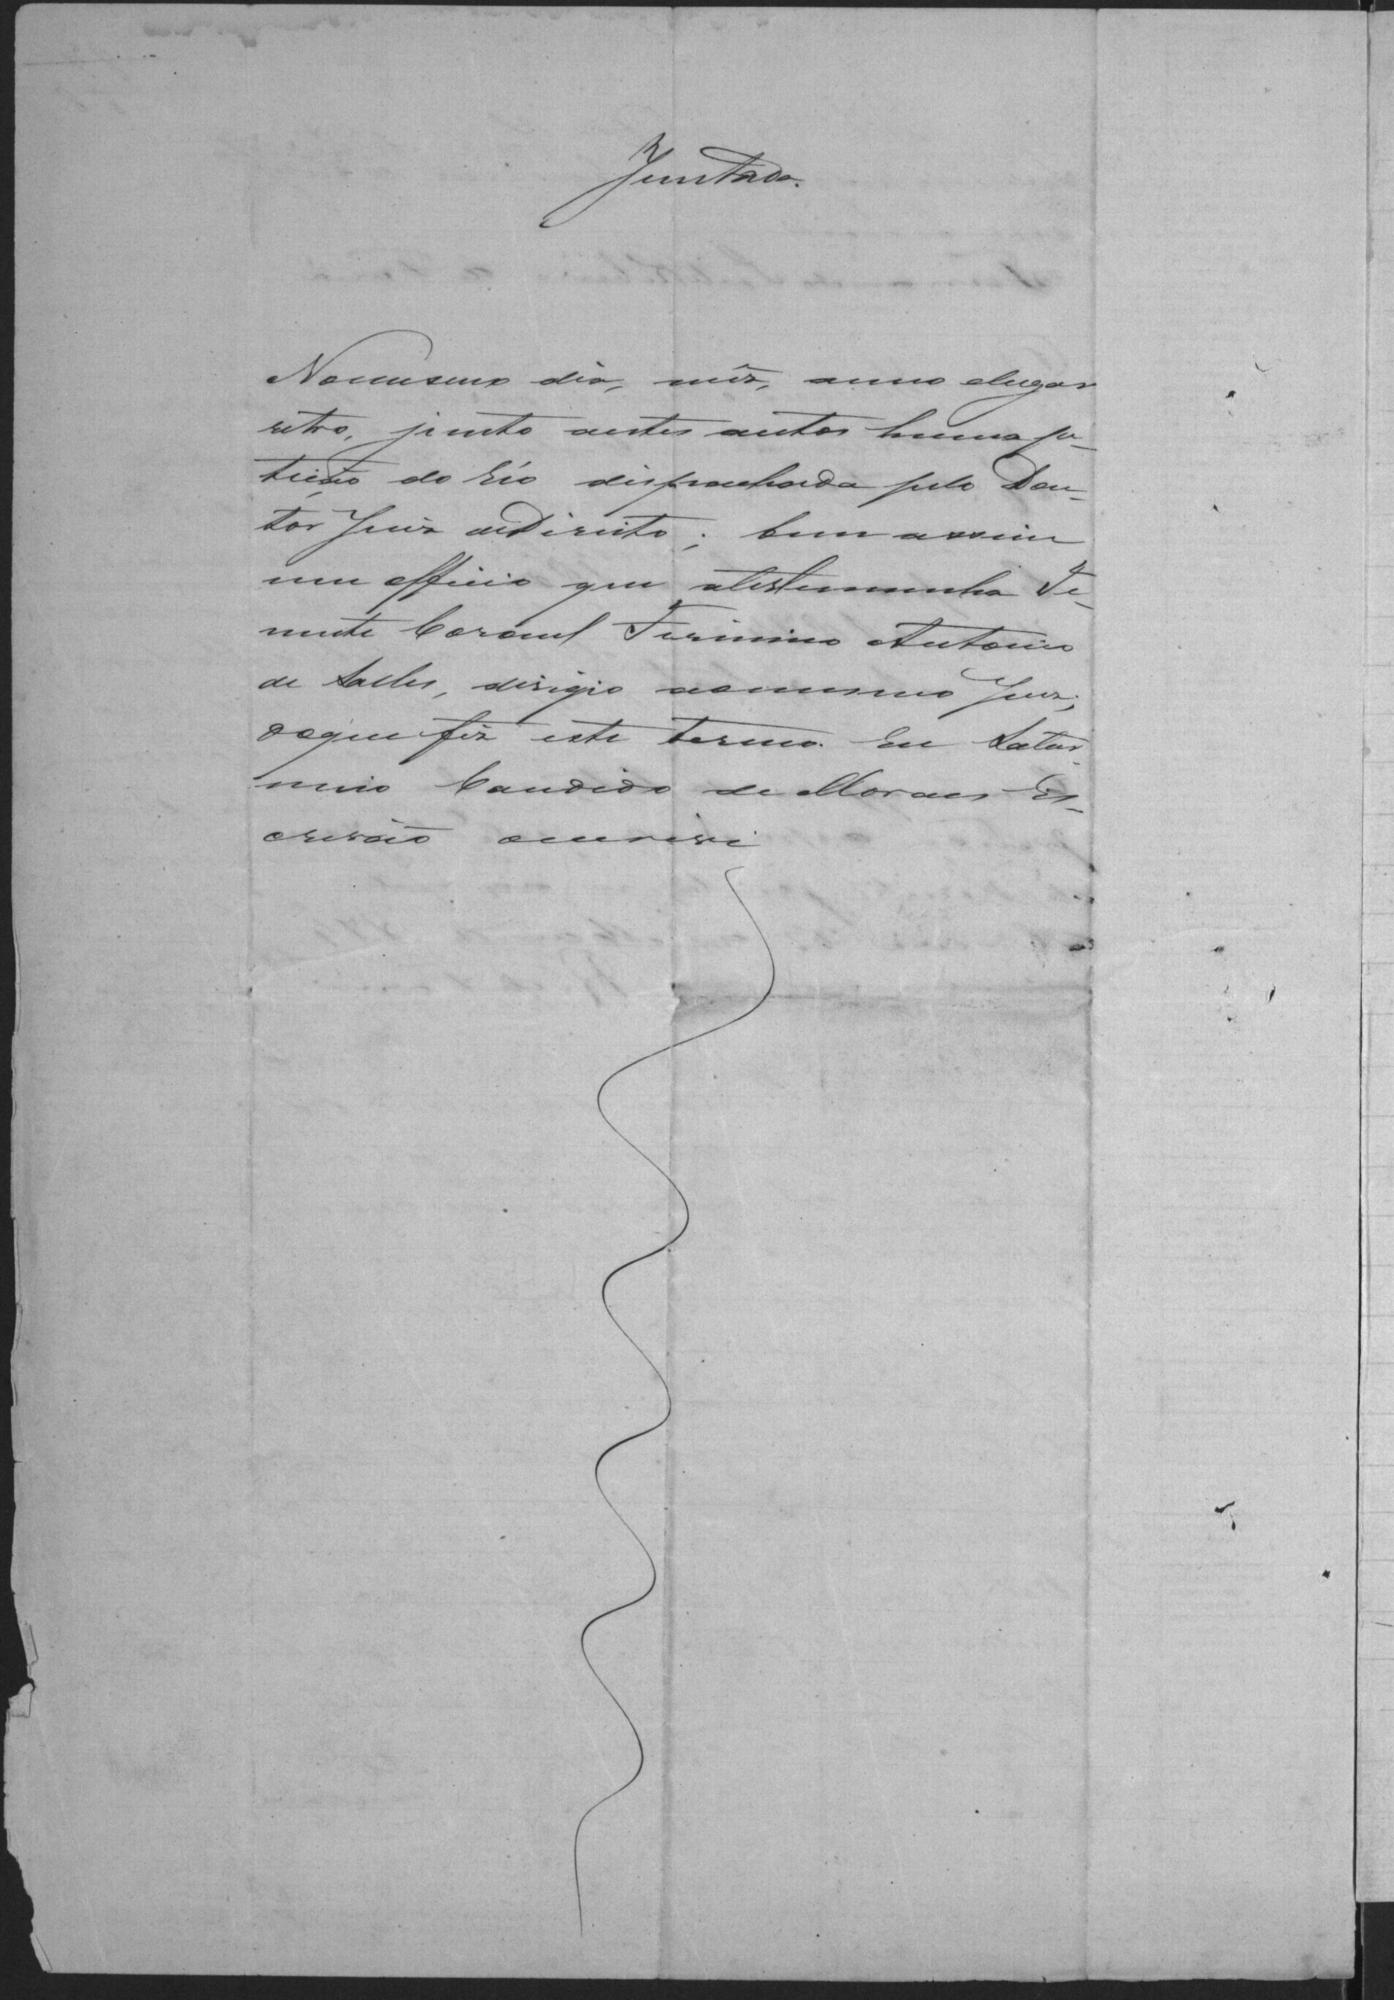 Juntada.
Nomesmo dia, mêz, anno elugar
retro, junto aestes autos huma pe-
tição do Réo despachada pelo Dou-
tor Juiz deDireito; bem assim
um officio que atestemunha Te-
nente Coronel Firmino Antonio
de Salles, dirigio aomesmo Juiz;
doque fiz este termo. Eu Satur-
nino Candido de Moraes Es-
crivão oescrevi